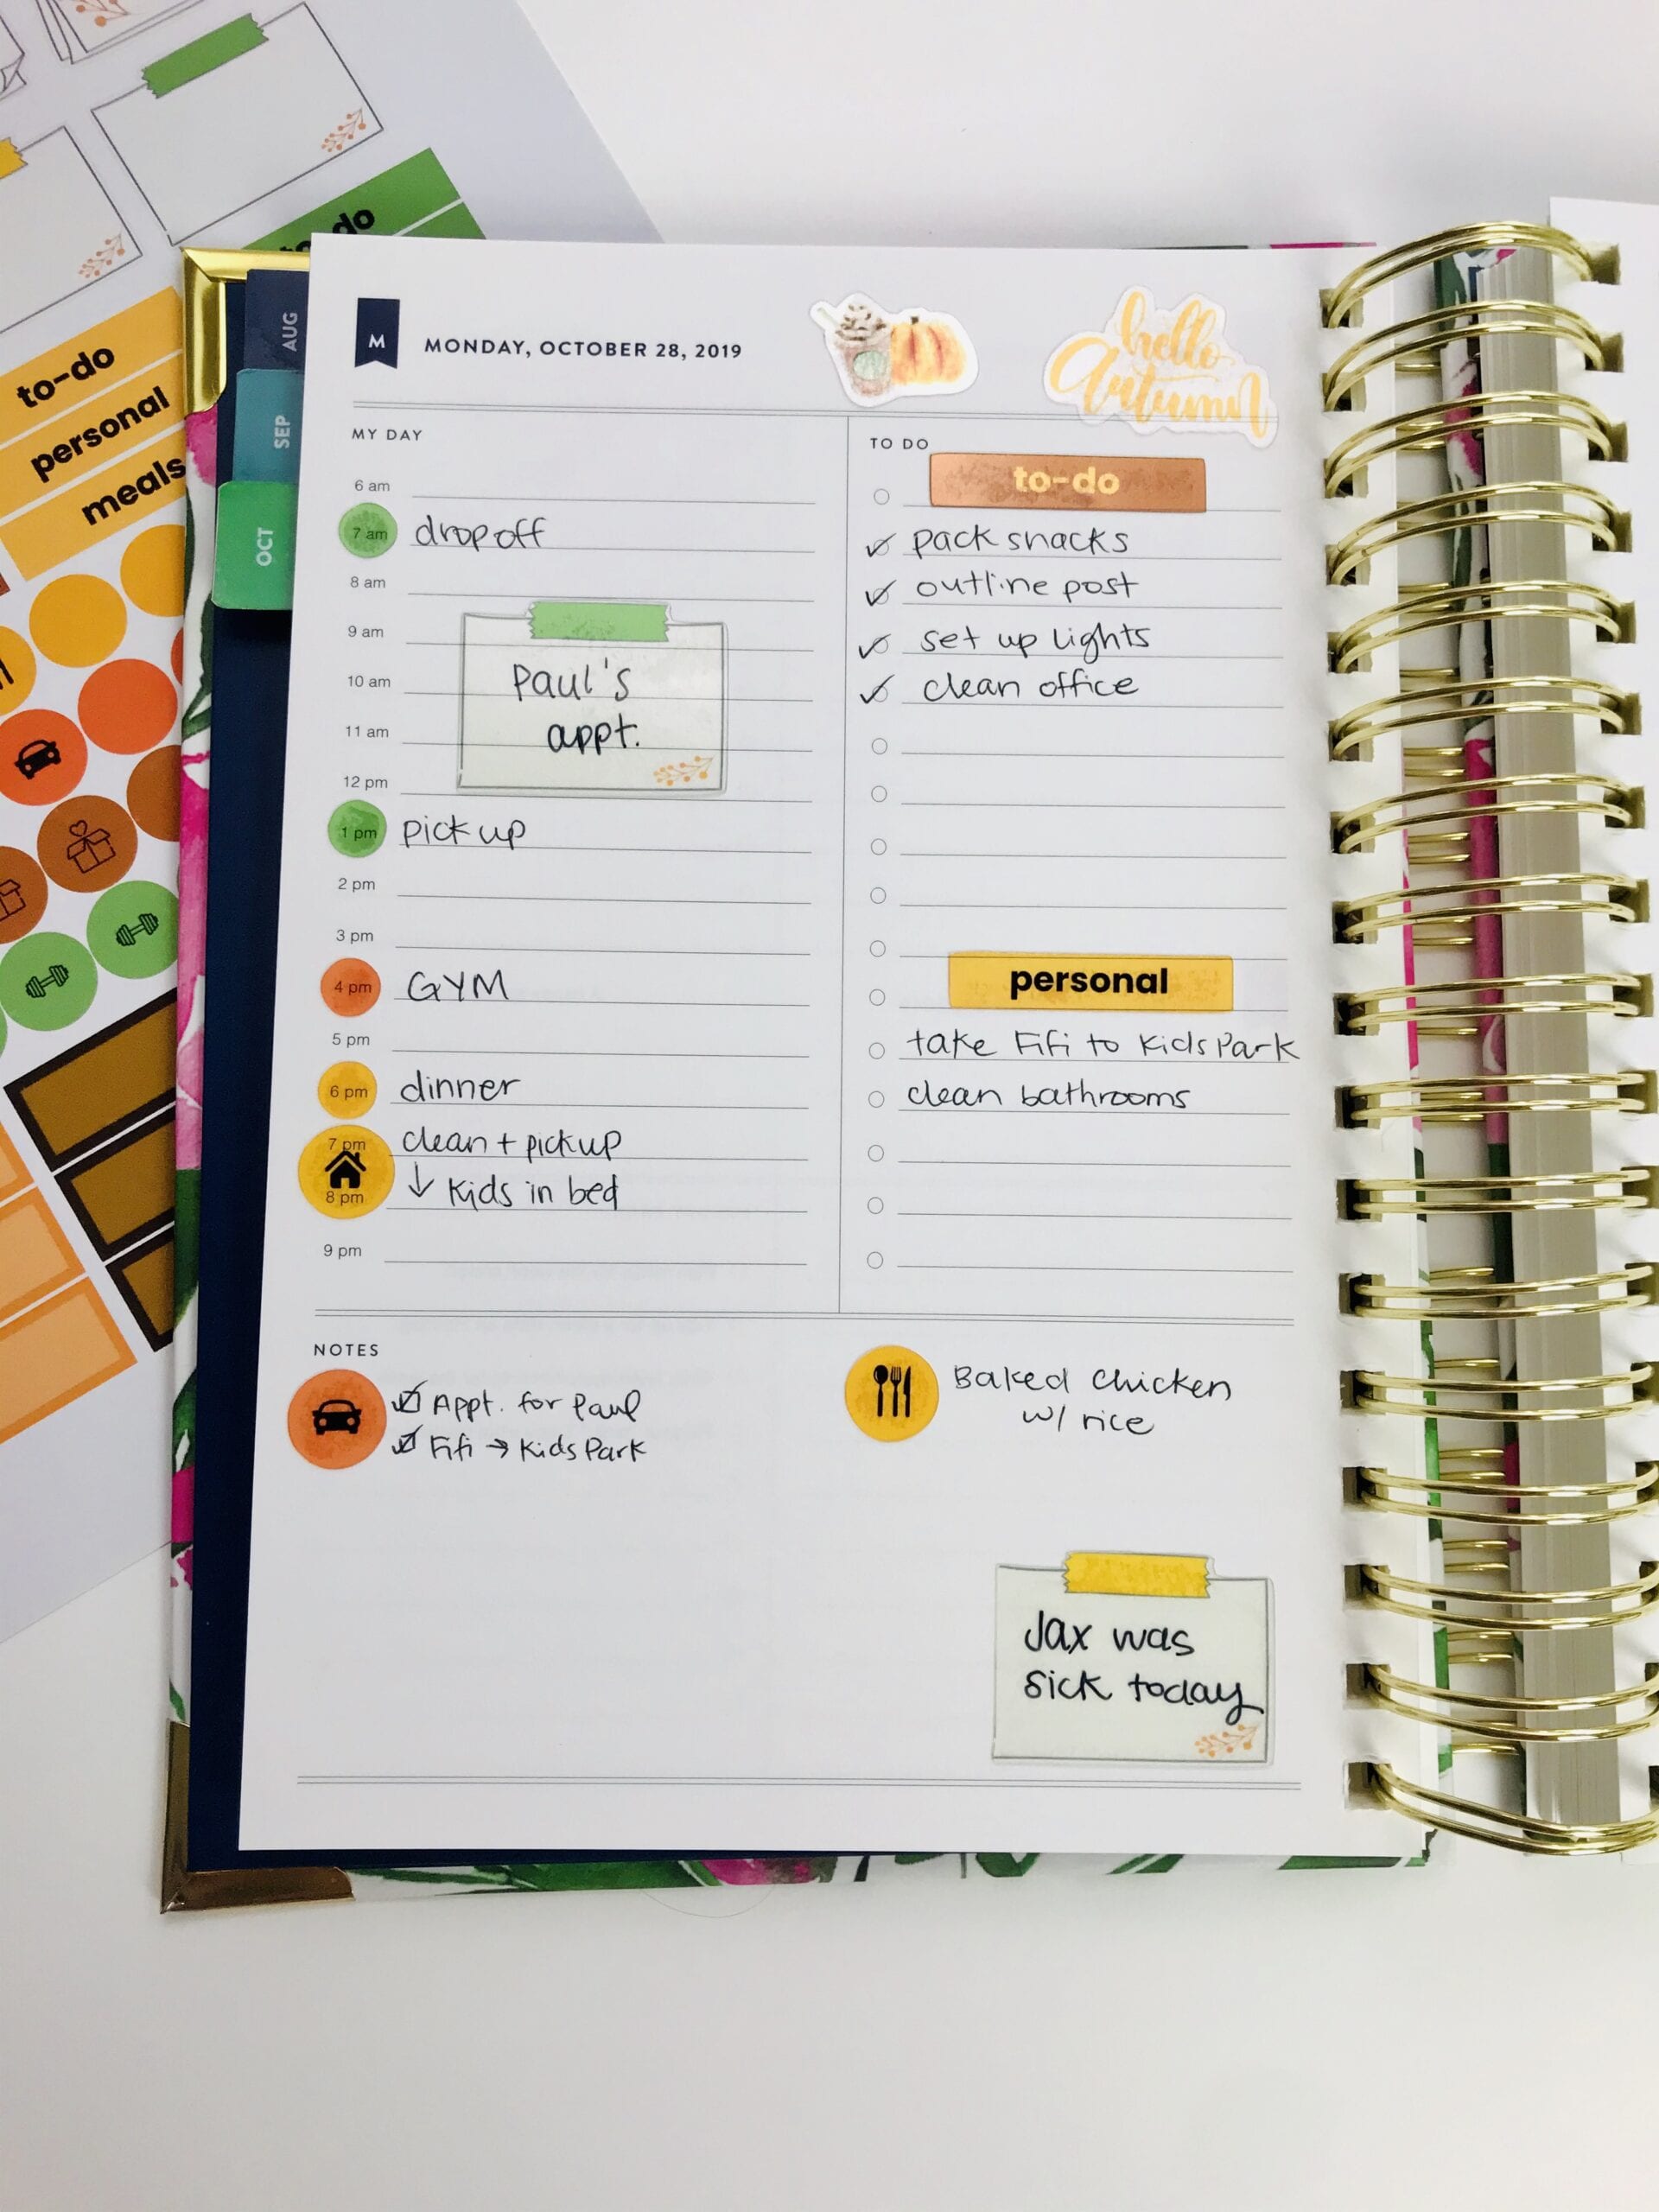 to-do
to-do
personal
meals
AUG
SEP
OCT
M
MONDAY, OCTOBER 28, 2019
hello
Autumn
MY DAY
6 am
7 am dropoff
8 am
9 am
10 am
11 am
12 pm
Paul's
appt.
1 pm pick up
2 pm
3 pm
4 pm GYM
5 pm
6 pm dinner
7 pm clean + pickup
8 pm ↓ Kids in bed
9 pm
TO DO
to-do
pack snacks
outline post
set up lights
clean office
personal
take Fifi to Kids Park
clean bathrooms
NOTES
Appt. for Paul
Fifi → Kids Park
Baked Chicken
w/ rice
Jax was
sick today